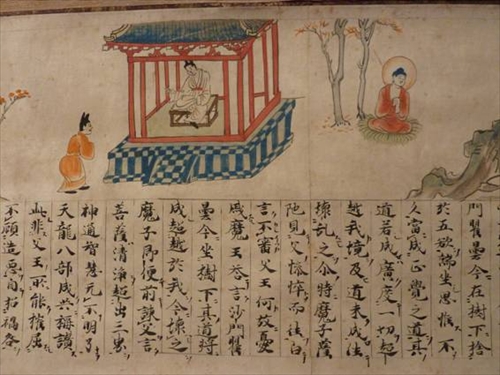 門瞿曇今在樹下捨
於五欲端坐思惟不
久當成正覺之道其
道若成廣度一切超
越我境及道未成往
壞乱之尒時魔子薩
陁見父憔悴而往白
言不審父王何故憂
慼魔王荅言沙門瞿
曇今坐樹下其道將
成超越於我今壞之
魔子即便前諫父言
菩薩清淨超出三界
神通智慧无不明了
天龍八部咸共稱讃
此非父王所能摧屈
不須造惡自招禍咎